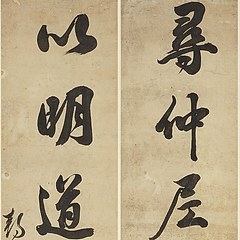 尋仲尼
以明道